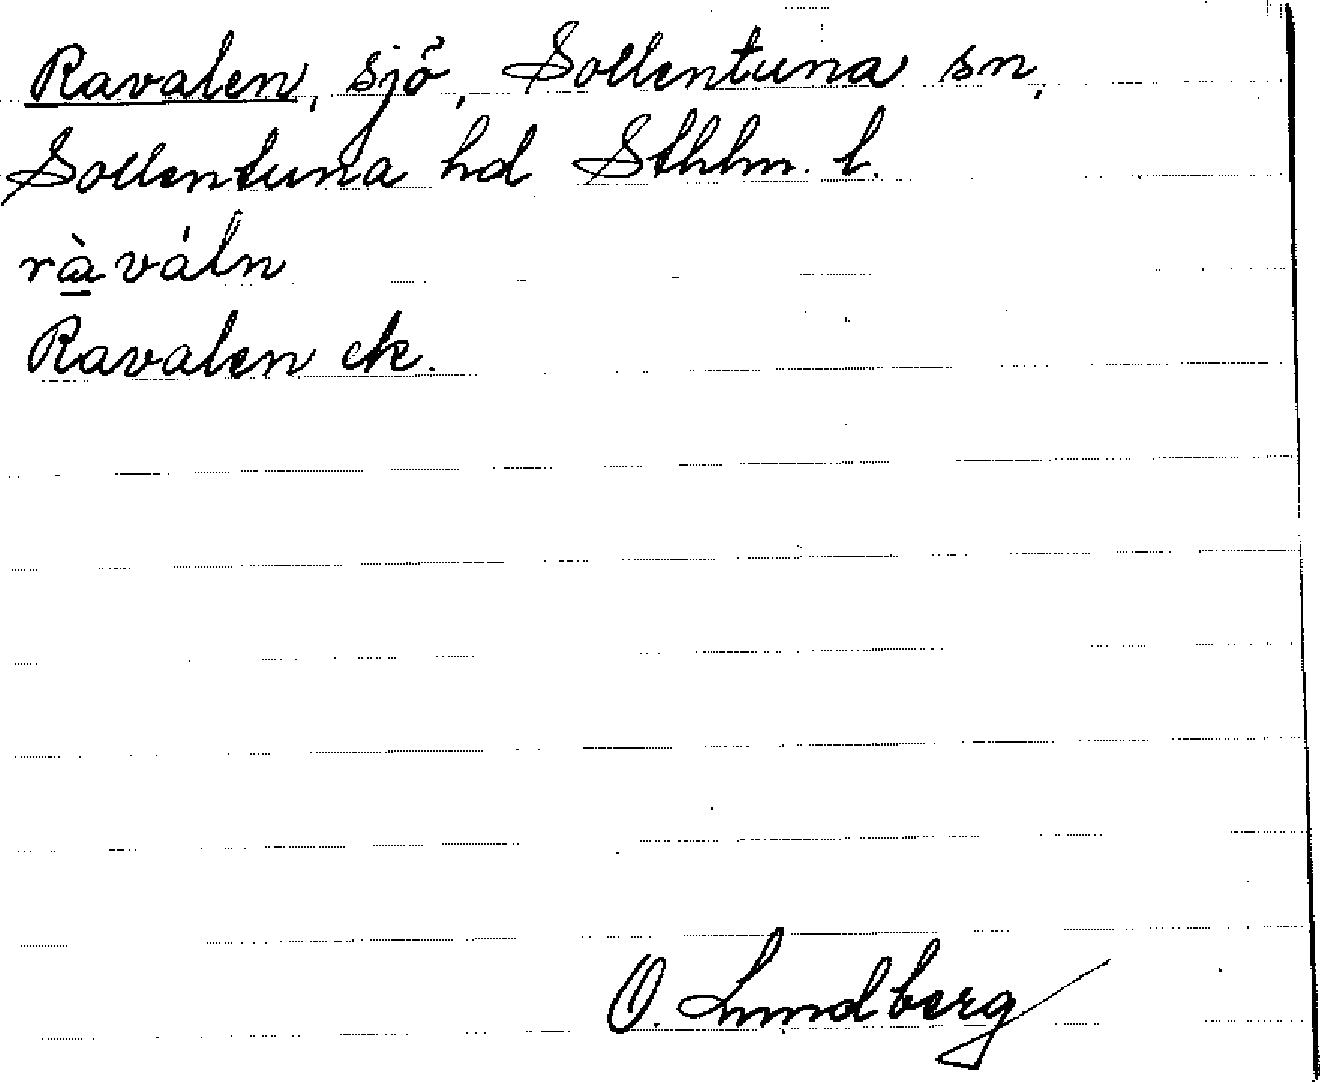 Ravalen, sjö, Sollentuna sn,
Sollentuna hd Sthlm. l.
ràváln
Ravalen ek.
O. Lundberg